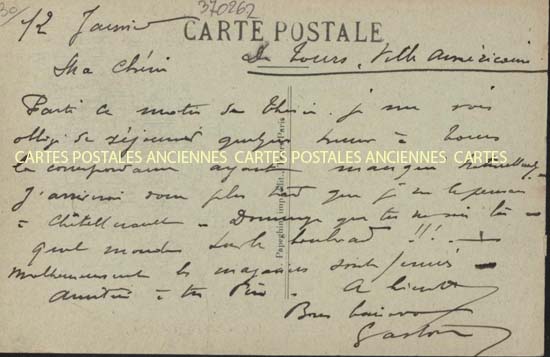 30
370262
12 Janvier
CARTE POSTALE
De Tours, Ville Américaine
Ma Chérie
Parti ce matin de je me vois
obligé de séjourner quelques heures à Tours
CARTES POSTALES ANCIENNES CARTES POSTALES ANCIENNES CARTES POSTALES ANCIENNES
la correspondance ayant manqué
J'arriverai donc plus tard que je ne le pensais
à Châtellerault - Dommage que tu ne sois là -
quel monde sur le boulevard !!! -
Malheureusement les magasins sont fermés -
Amitiés à ton Père A bientôt
Bons baisers
Gaston
Papeghin, imp.-édit., Paris